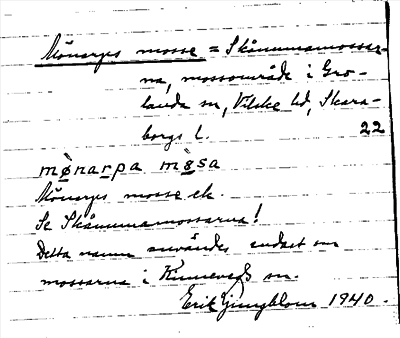 Mönarps mosse = Skånumamossar-
na, mossområde i Gro-
landa sn, Vilske hd, Skara-
borgs l. 22
mø̀narpa møsa
Mönarps mosse ek.
Se Skånumamossarna!
Detta namn användes endast om
mossarna i Kinneveds sn.
Erik Ljungblom 1940.